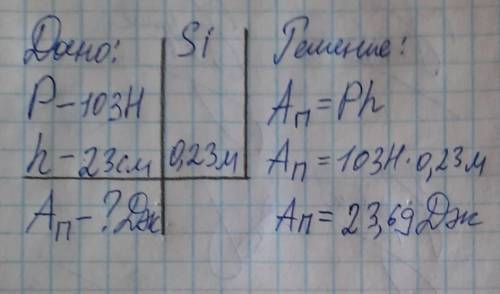 Дано:
Si
P-103Н
h-23см
0,23м
Aп-?Дж
Решение:
Aп=Ph
Aп=103Н·0,23м
Aп=23,69Дж